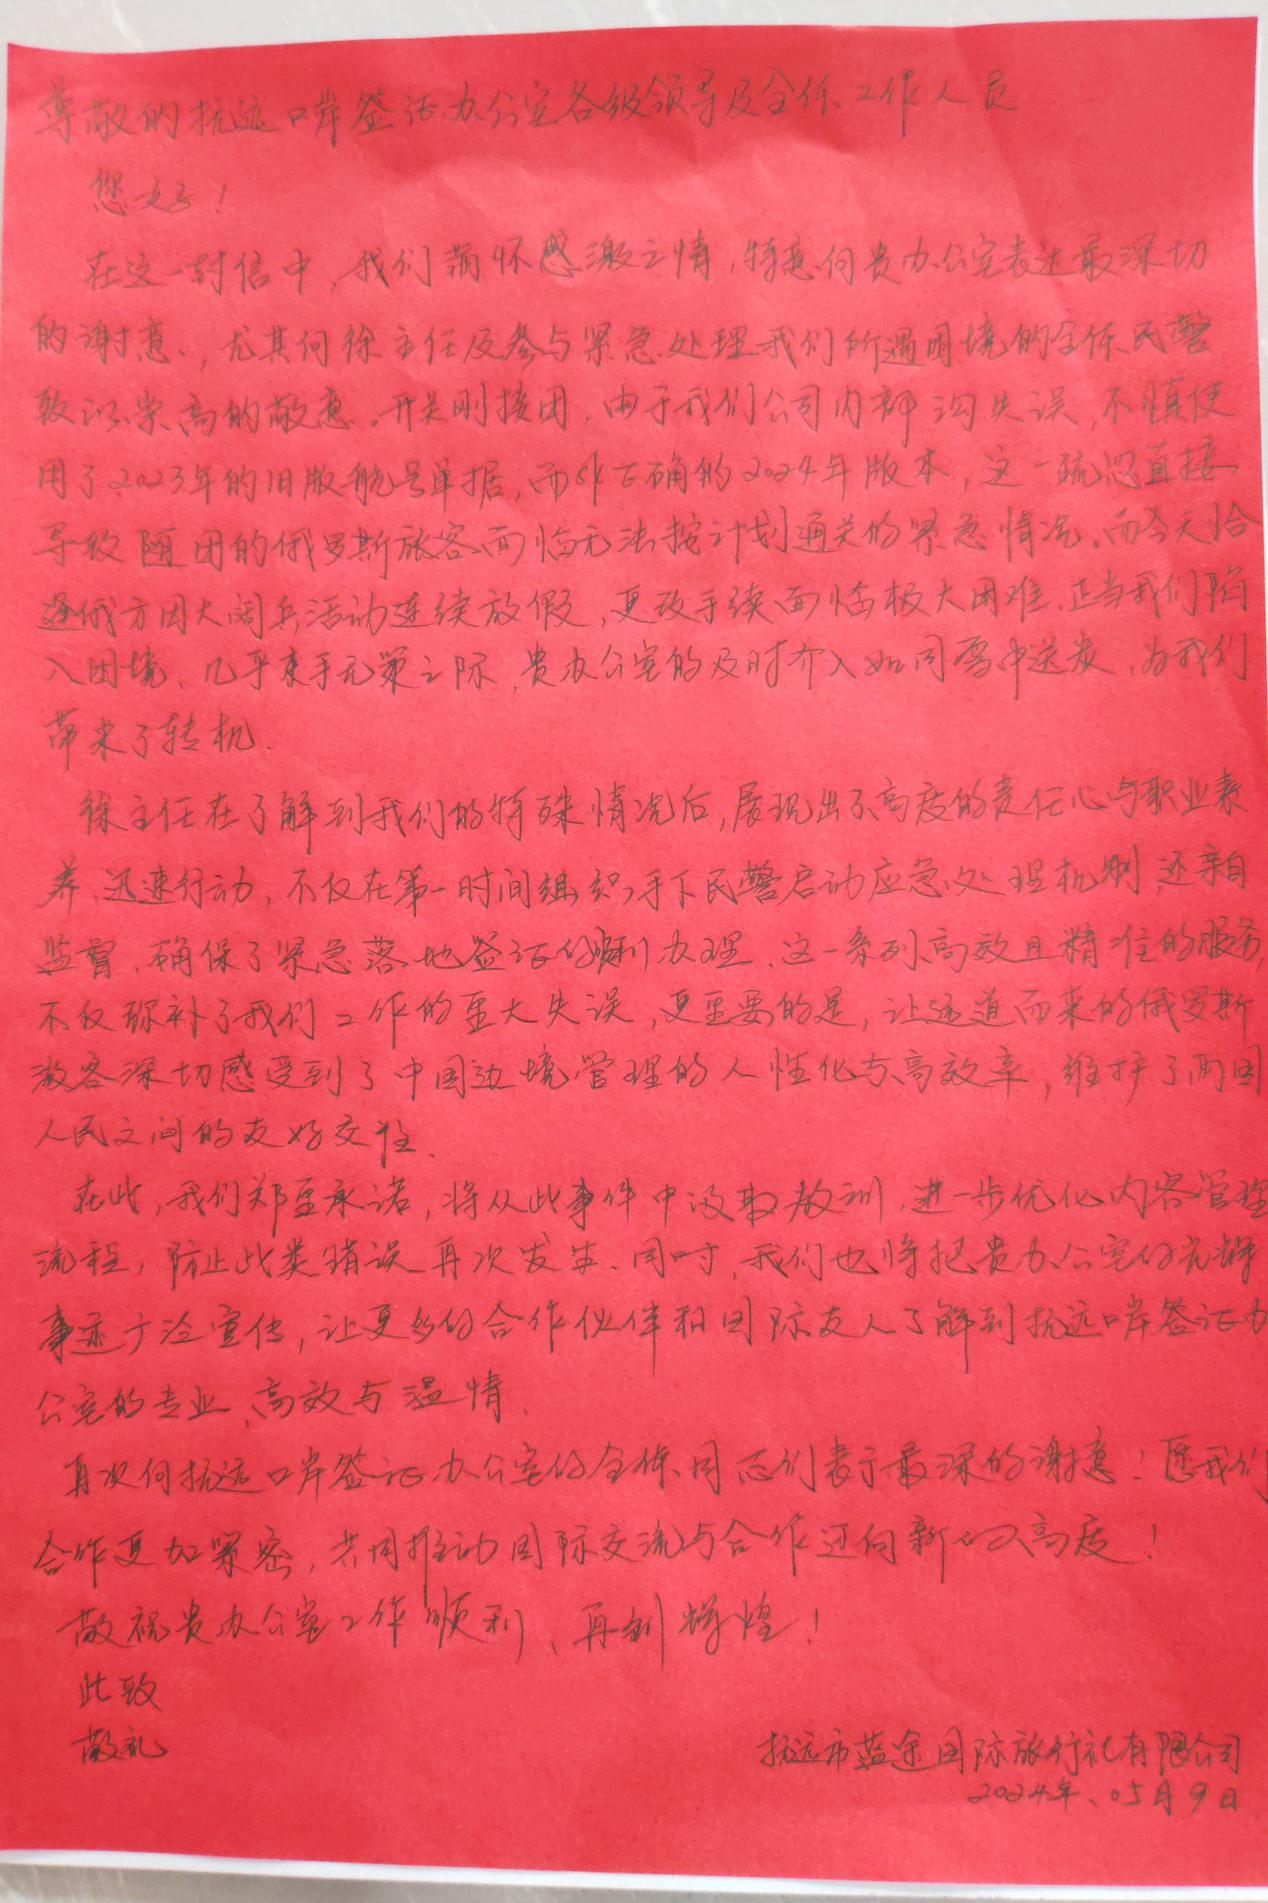 尊敬的抚远口岸签证办公室各级领导及全体工作人员
您好！
在这一封信中，我们满怀感激之情，特意向贵办公室表达最深切
的谢意，尤其向徐主任及参与紧急处理我们所遇困境的全体民警
致以崇高的敬意。开关刚接团，由于我们公司内部沟失误，不慎使
用了2023年的旧版航号单据，而非正确的2024年版本，这一疏忽直接
导致随团的俄罗斯旅客面临无法按计划通关的紧急情况。而今天恰
逢俄方因大阅兵活动连续放假，更改手续面临极大困难。正当我们陷
入困境、几乎束手无策之际，贵办公室的及时介入如同雪中送炭，为我们
带来了转机。
徐主任在了解到我们的特殊情况后，展现出了高度的责任心与职业素
养，迅速行动，不仅在第一时间组织手下民警启动应急处理机制，还亲自
监督，确保了紧急落地签证的顺利办理。这一系列高效且精准的服务，
不仅弥补了我们工作的重大失误，更重要的是，让远道而来的俄罗斯
游客深切感受到了中国边境管理的人性化与高效率，维护了两国
人民之间的友好交往。
在此，我们郑重承诺，将从此事件中汲取教训，进一步优化内容管理
流程，防止此类错误再次发生。同时，我们也将把贵办公室的光辉
事迹广泛宣传，让更多的合作伙伴和国际友人了解到抚远口岸签证办
公室的专业、高效与温情。
再次向抚远口岸签证办公室的全体同志们表示最深的谢意！愿我们
合作更加紧密，共同推动国际交流与合作迈向新的高度！
敬祝贵办公室工作顺利、再创辉煌！
此致
敬礼
抚远市蓝途国际旅行社有限公司
2024年、05月9日